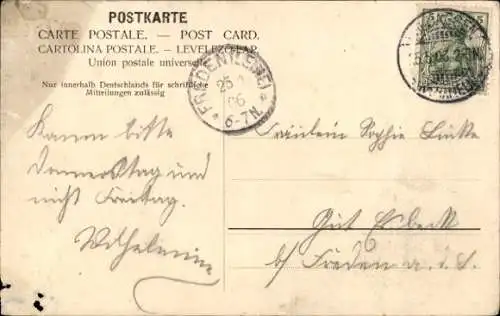 POSTKARTE
CARTE POSTALE. — POST CARD.
CARTOLINA POSTALE. — LEVELEZŐ-LAP.
Union postale universelle
Nur innerhalb Deutschlands für schriftliche
Mitteilungen zulässig
FREDEN (LEINE)
25
06
6-7N.
5
Kommen bitte
Donnerstag und
nicht Freitag.
Wilhelmine
Fräulein Sophie
Gut Esbeck
b/ Freden a. d. L.